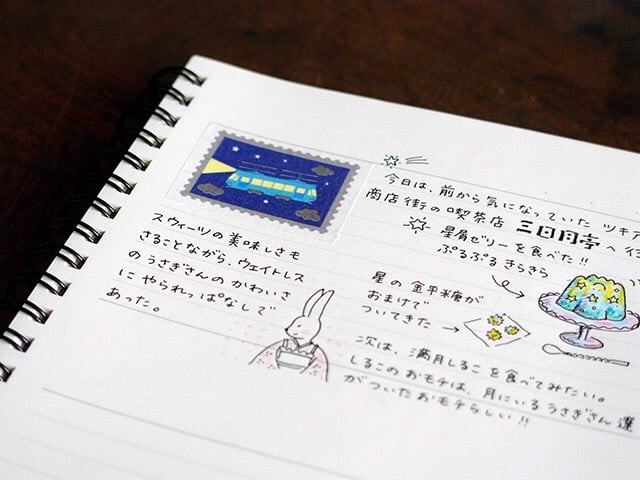 今日は、前から気になっていた ツキア
商店街の喫茶店 三日月亭 へ行
星屑ゼリーを食べた!!
ぷるぷる きらきら
星の 金平糖が
おまけで
ついてきた
次は、満月しるこ を食べてみたい。
しるこの おモチは、月にいる うさぎさん達
がついた おモチらしい!!
スウィーツの美味しさも
さることながら、ウェイトレス
のうさぎさんの かわいさ
に やられっぱなしで
あった。